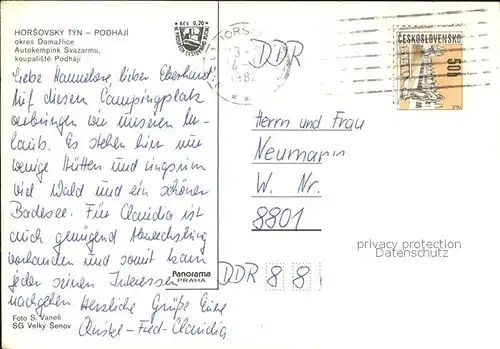 HORŠOVSKÝ TÝN – PODHÁJÍ
okres Domažlice
Autokempink Svazarmu,
koupaliště Podhájí
Kčs 0,20
Liebe Hannelore lieber Eberhard!
Auf diesem Campingplatz
verbringen wir unseren Ur-
laub. Es stehen hier nur
wenige Hütten und ringsrum
viel Wald und ein schöner
Badesee. Für Claudia ist
auch genügend Abwechslung
vorhanden und somit kann
jeder seinen Interessen
nachgehen Herzliche Grüße Eure
Christel-Fred-Claudia
Panorama
PRAHA
Foto S. Vaneš
SG Velký Šenov
DDR
ČESKOSLOVENSKO
50h
Herrn und Frau
Neumann
W. Nr.
8801
privacy protection
Datenschutz
DDR 8 8